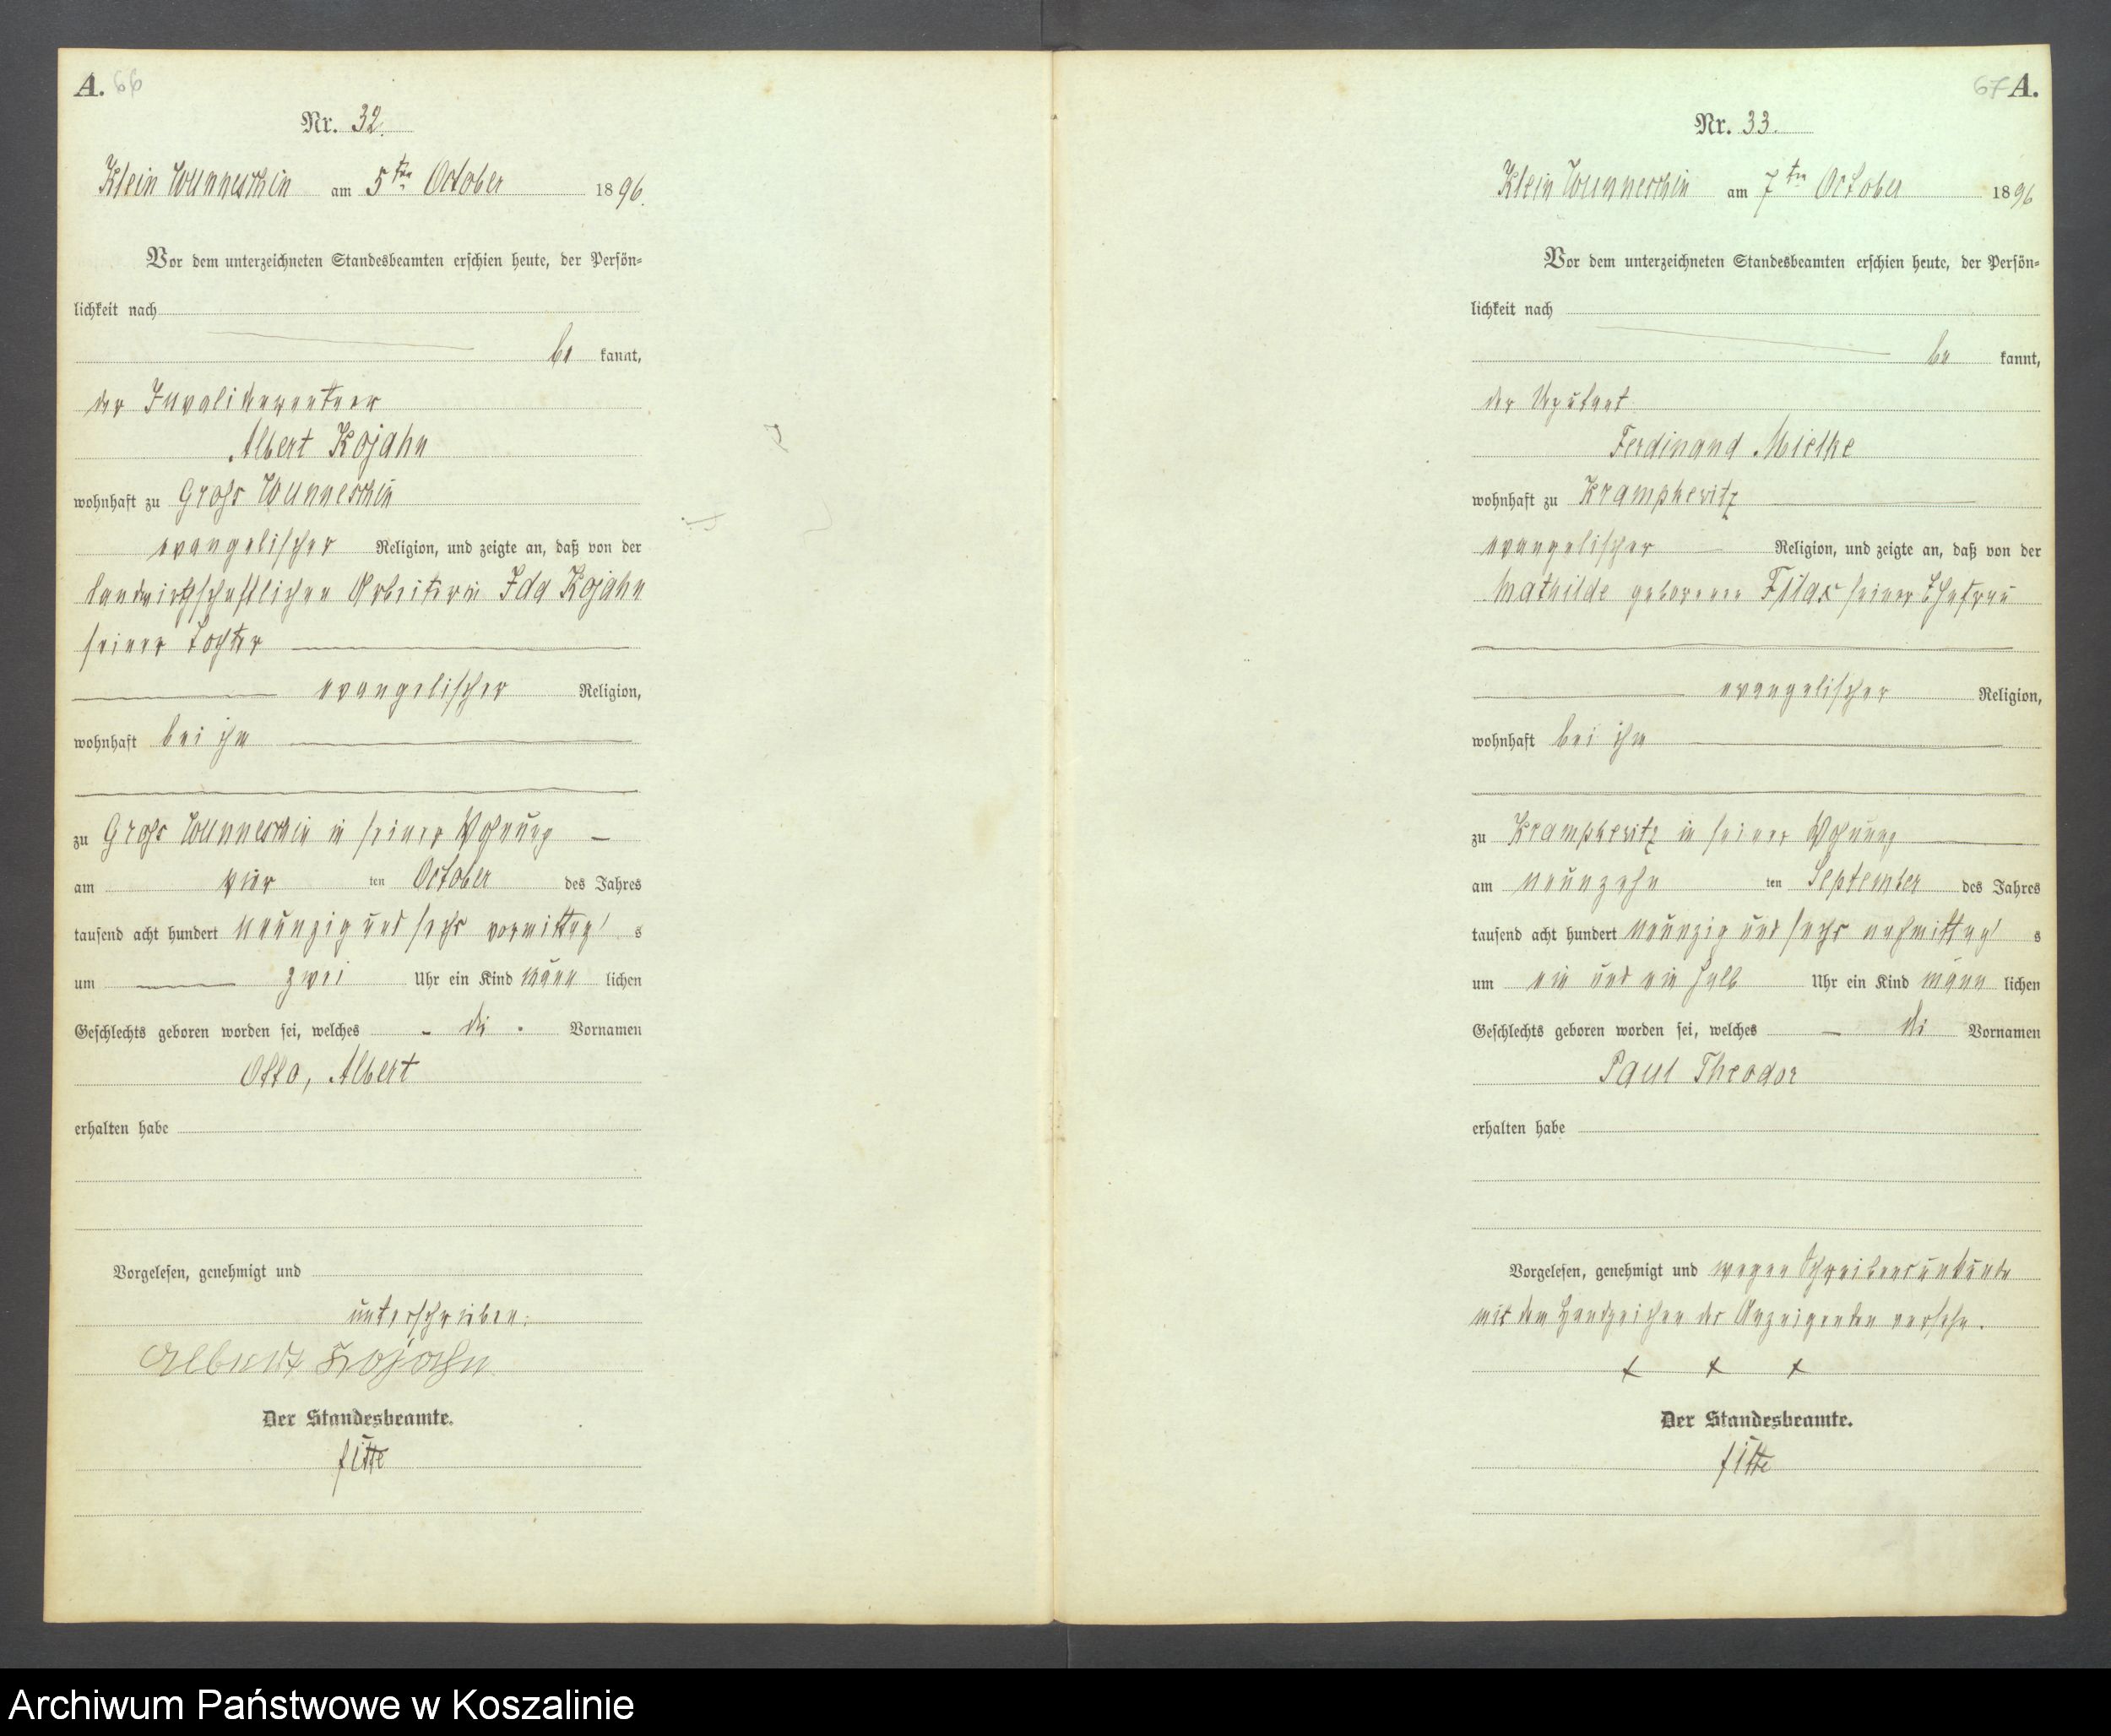 A. 66
Nr. 32.
Klein Wunneschin am 5ten October 1896.
Vor dem unterzeichneten Standesbeamten erschien heute, der Persön-
lichkeit nach
be kannt,
der Invalidenrentner
Albert Kojahn
wohnhaft zu Groß Wunneschin
evangelischer Religion, und zeigte an, daß von der
landwirthschaftlichen Arbeiterin Ida Kojahn
seiner Tochter
evangelischer Religion,
wohnhaft bei ihm
zu Groß Wunneschin in seiner Wohnung
am vier ten October des Jahres
tausend acht hundert neunzig und sechs vormittag s
um zwei Uhr ein Kind männ lichen
Geschlechts geboren worden sei, welches die Vornamen
Otto, Albert
erhalten habe
Vorgelesen, genehmigt und
unterschrieben.
Albert Kojahn
Der Standesbeamte.
67 A.
Nr. 33.
Klein Wunneschin am 7ten October 1896
Vor dem unterzeichneten Standesbeamten erschien heute, der Persön-
lichkeit nach
be kannt,
der Deputant
Ferdinand Mielke
wohnhaft zu Krampkewitz
evangelischer Religion, und zeigte an, daß von der
Mathilde geborenen seiner Ehefrau
evangelischer Religion,
wohnhaft bei ihm
zu Krampkewitz in seiner Wohnung
am neunzehn ten September des Jahres
tausend acht hundert neunzig und sechs nachmittag s
um ein und ein halb Uhr ein Kind männ lichen
Geschlechts geboren worden sei, welches die Vornamen
Paul Theodor
erhalten habe
Vorgelesen, genehmigt und wegen Schreibensunkunde
mit dem Handzeichen des Anzeigenden versehn.
+ + +
Der Standesbeamte.
Archiwum Państwowe w Koszalinie